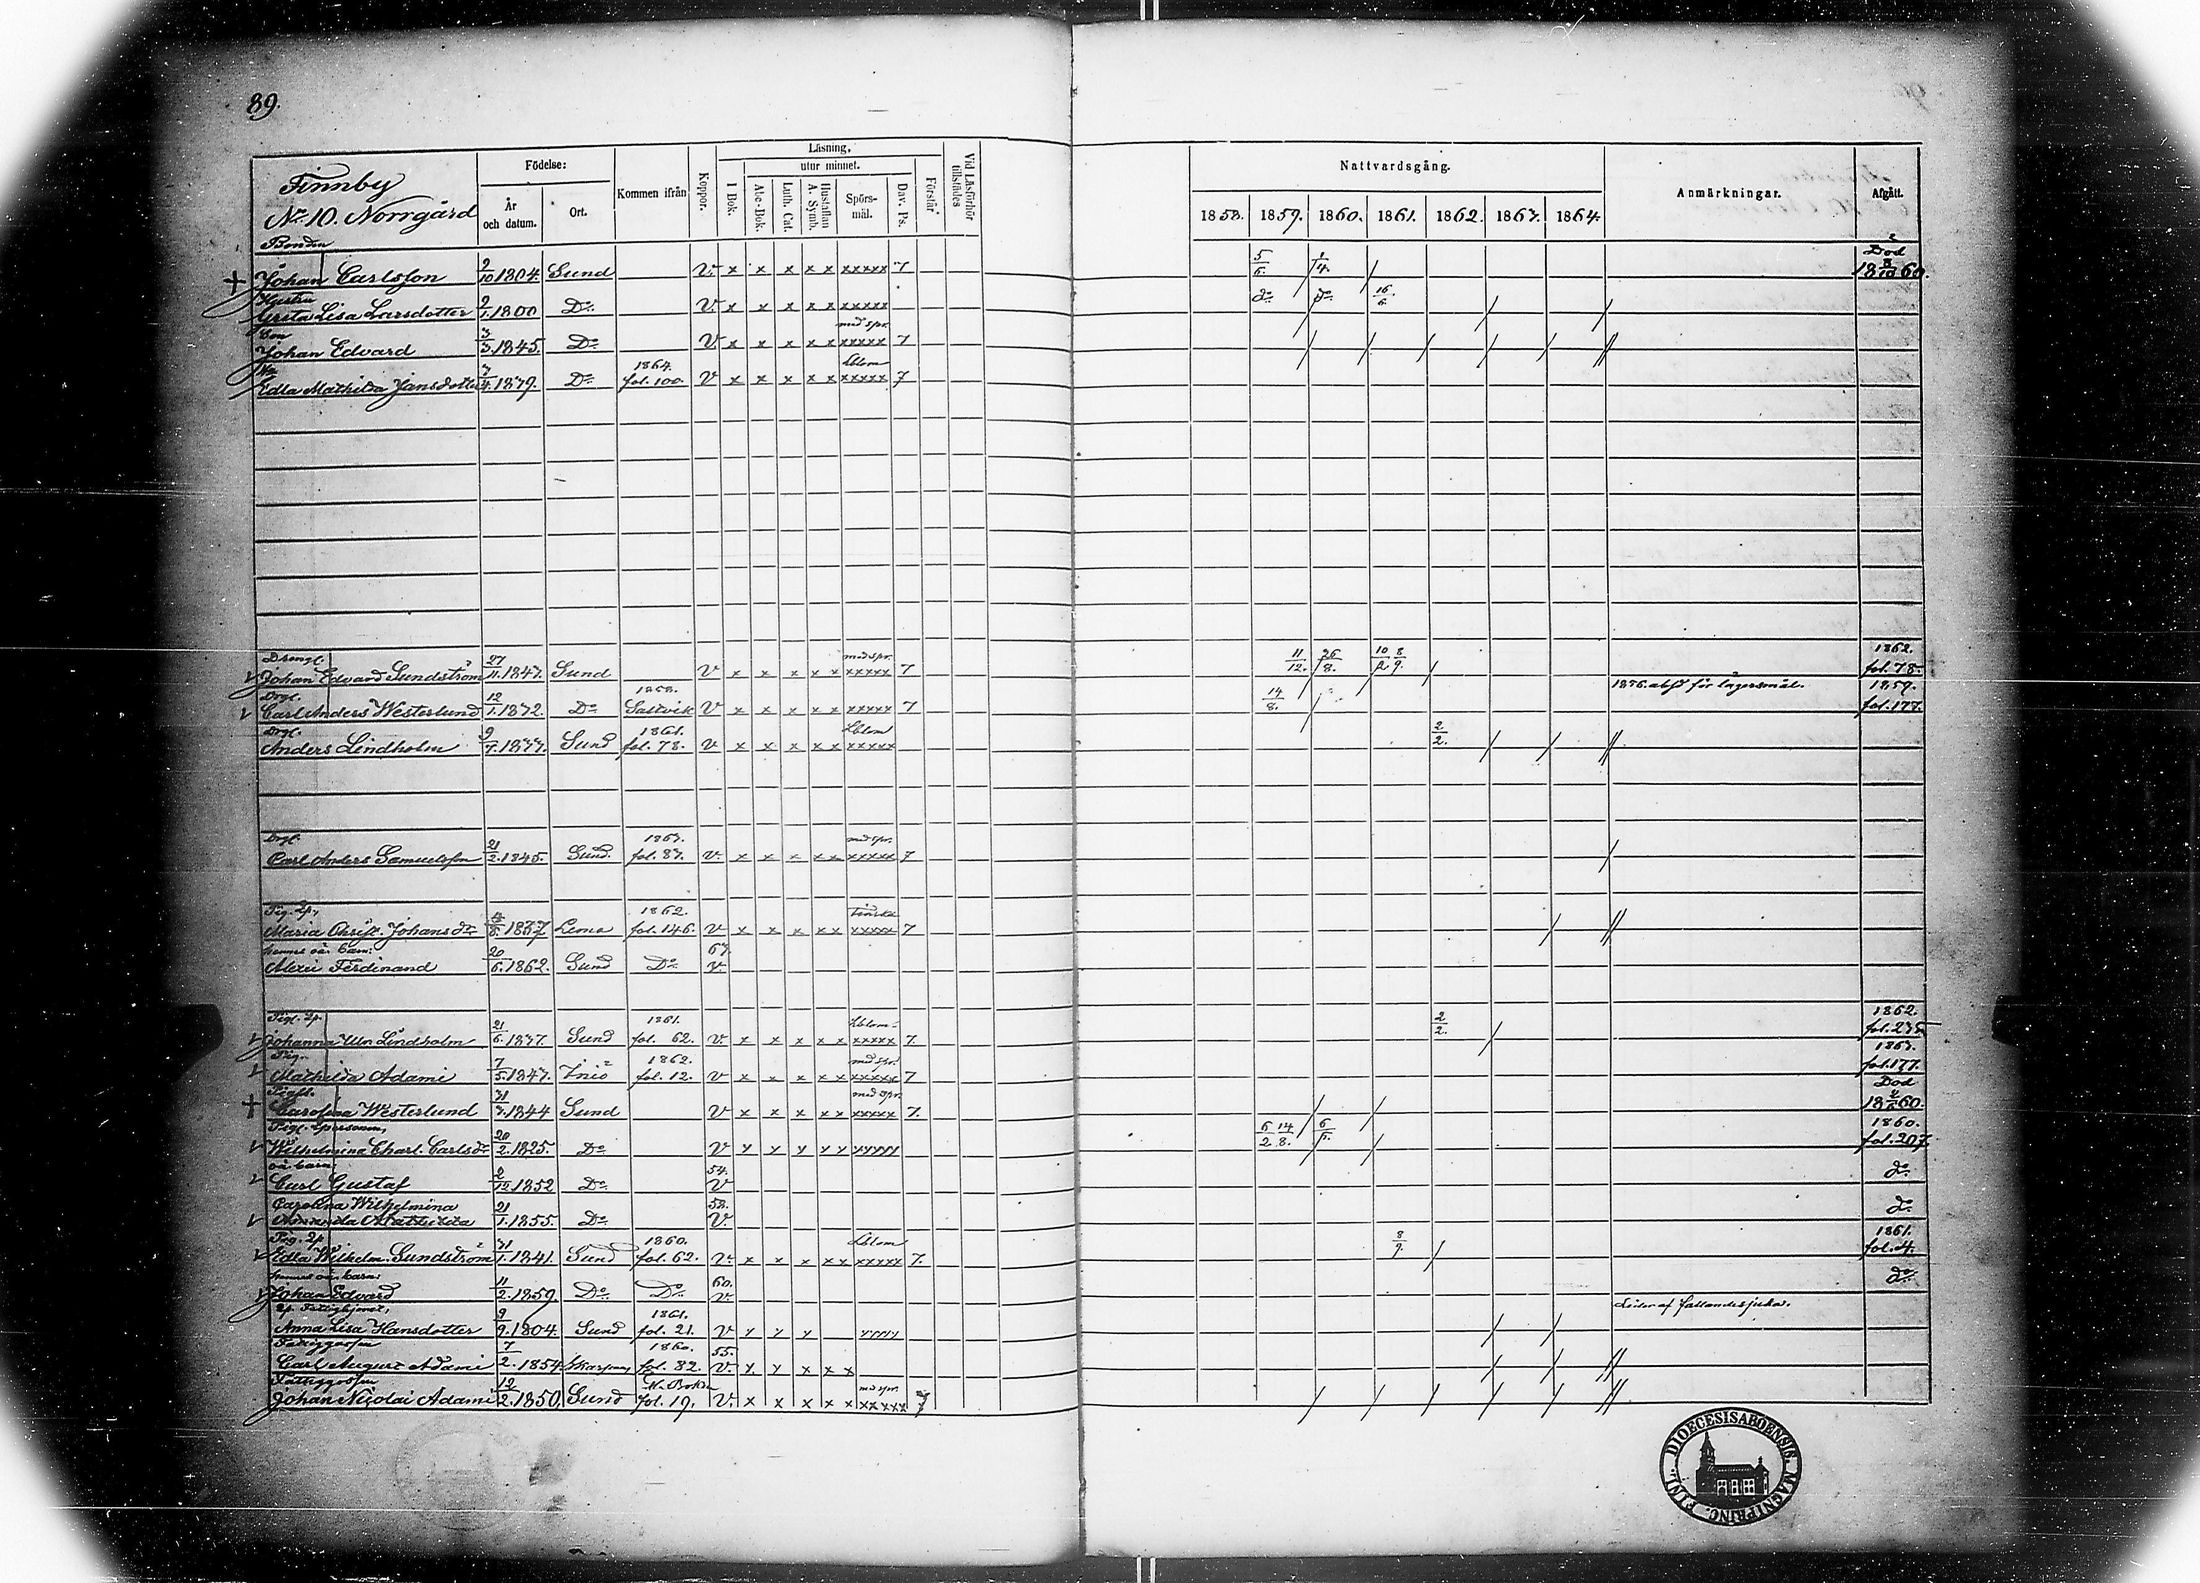 89.
Finnby
No 10. Norrgård
Födelse:
År och datum.
Ort.
Kommen ifrån
Koppor.
Läsning,
utur minnet.
I Bok.
Abc-Bok.
Luth. Cat.
Hustaflan A. Symb.
Spörs-mål.
Dav. Ps.
Förstår
Vid Läsförhör tillstädes
Nattvardsgång.
1858. 1859. 1860. 1861. 1862. 1863. 1864.
Anmärkningar.
Afgått.
Bonden
Johan Carlsson 2/10 1804. Sund V. x x x x x xxxxx 7 5/6. 1/4. Död 18 8/10 60.
Hustru
Greta Lisa Larsdotter 2/1. 1800 Do V. x x x x x xxxxx do do 16/6.
Son med spr.
Johan Edvard 3/3. 1845. Do V x x x x x xxxxx 7
1864.
Edla Mathilda Jansdotter 7/4. 1839. Do fol. 100. V x x x x x xxxxx 7
Drengl. med spr. 1862.
Johan Edvard Sundström 27/11. 1843. Sund V x x x x x xxxxx 7 11/12. 26/8. 10/2 8/9. fol. 78.
Drgl. 1858. 1859.
Carl Anders Westerlund 12/1. 1832. Do Saltvik V x x x x x xxxxx 7 14/8. för lägersmål. fol. 177.
Drgl. 1861.
Anders Lindholm 9/7. 1833. Sund fol. 78. V x x x x x xxxxx 2/2.
Drgl. 1863. med spr.
Carl Anders Samuelsson 21/2. 1845. Sund. fol. 87. V. x x x x x xxxxx 7
Pig. 1862.
Maria Christ. Johansdr 1837 Lemo fol. 146. V x x x x x xxxxx 7
hennes oä. barn: 63.
Alexis Ferdinand 20/6. 1862. Sund Do V.
Pigl. 1861. 1862.
Johanna Ulr. Lindholm 21/6. 1837. Sund fol. 62. V. x x x x x xxxxx 7. 2/2. fol. 235
Pig. 1862. med spr. 1863.
Mathilda Adami 7/5. 1843. Iniö fol. 12. V x x x x x xxxxx 7 fol. 177.
med spr. Död
Carolina Westerlund 31/3. 1844 Sund V x x x x x xxxxx 7. 60.
1860.
Wilhelmina Charl. Carlsdr 20/2. 1825. Do V x x x x x xxxxx 6/2 14/8. 6/5. fol. 207.
oä barn: 54.
Carl Gustaf 2/10. 1852 Do V do
Carolina Wilhelmina 58.
Amanda Mathilda 21/1. 1855. Do V. do
Pig. 1860. 1861.
Edla Wilhelm. Sundström 31/1. 1841. Sund fol. 62. V. x x x x x xxxxx 7. 8/9. fol. 4.
hennes oä. barn: 60.
Johan Edvard 11/2. 1859. Do Do V. do
1861. Lider af fallandesjuka.
Anna Lisa Hansdotter 9/9. 1804. Sund fol. 21. V x x x xxxxx
Fattiggosse 1860. 55.
Carl August Adami 7/2. 1854 fol. 82. V. x x x x x
Fattiggosse N. Boken med spr.
Johan Nicolai Adami 12/2. 1850. Sund fol. 19. V. x x x x x xxxxx 7
FINL. DIOECESIS ABOENSIS. MAGNI PRINC.